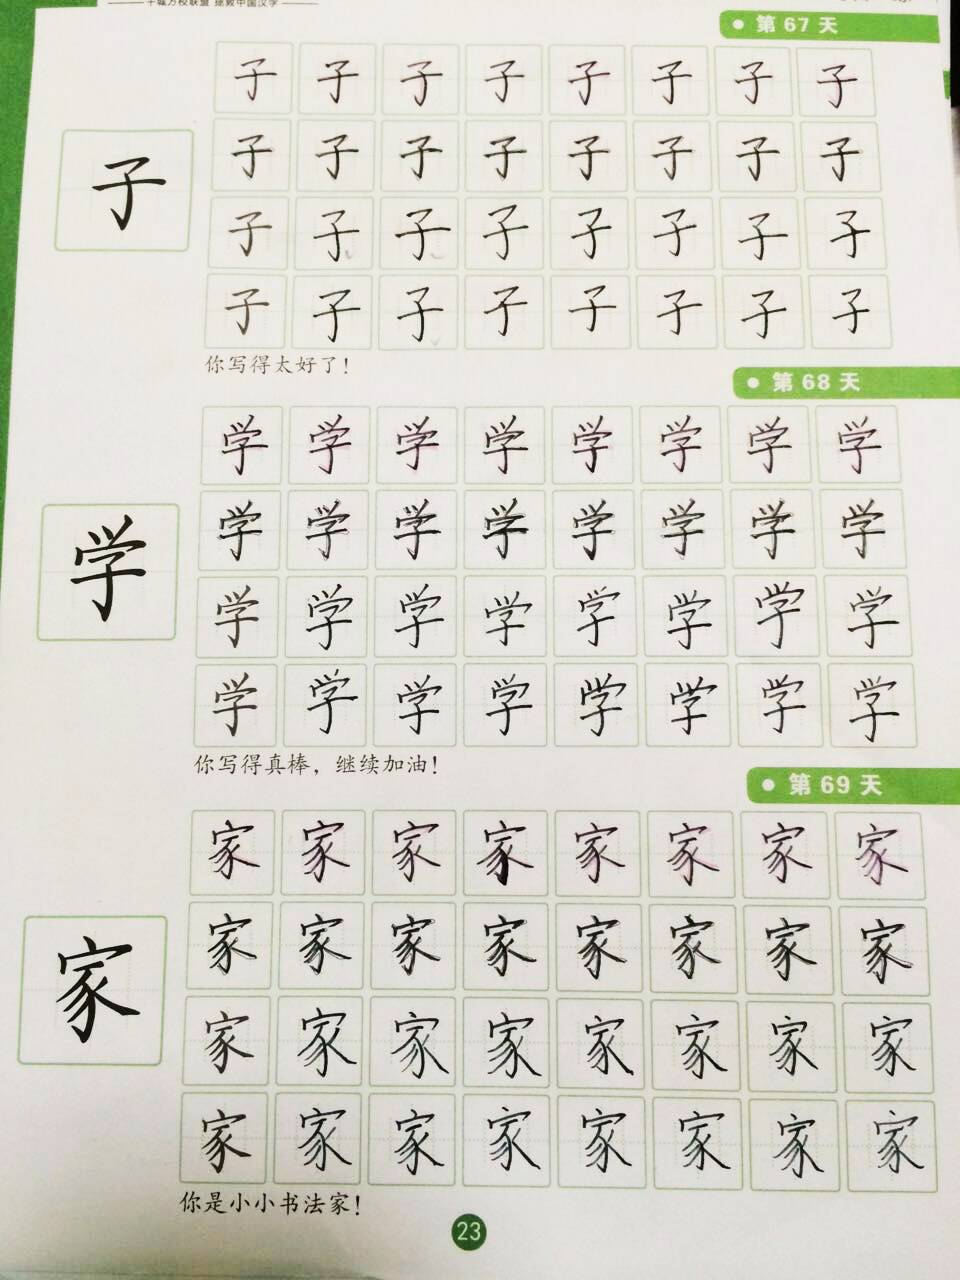 千城万校联盟 拯救中国汉字
第 67 天
子
子 子 子 子 子 子 子 子
子 子 子 子 子 子 子 子
子 子 子 子 子 子 子 子
子 子 子 子 子 子 子 子
你写得太好了!
第 68 天
学
学 学 学 学 学 学 学 学
学 学 学 学 学 学 学 学
学 学 学 学 学 学 学 学
学 学 学 学 学 学 学 学
你写得真棒，继续加油!
第 69 天
家
家 家 家 家 家 家 家 家
家 家 家 家 家 家 家 家
家 家 家 家 家 家 家 家
家 家 家 家 家 家 家 家
你是小小书法家!
23